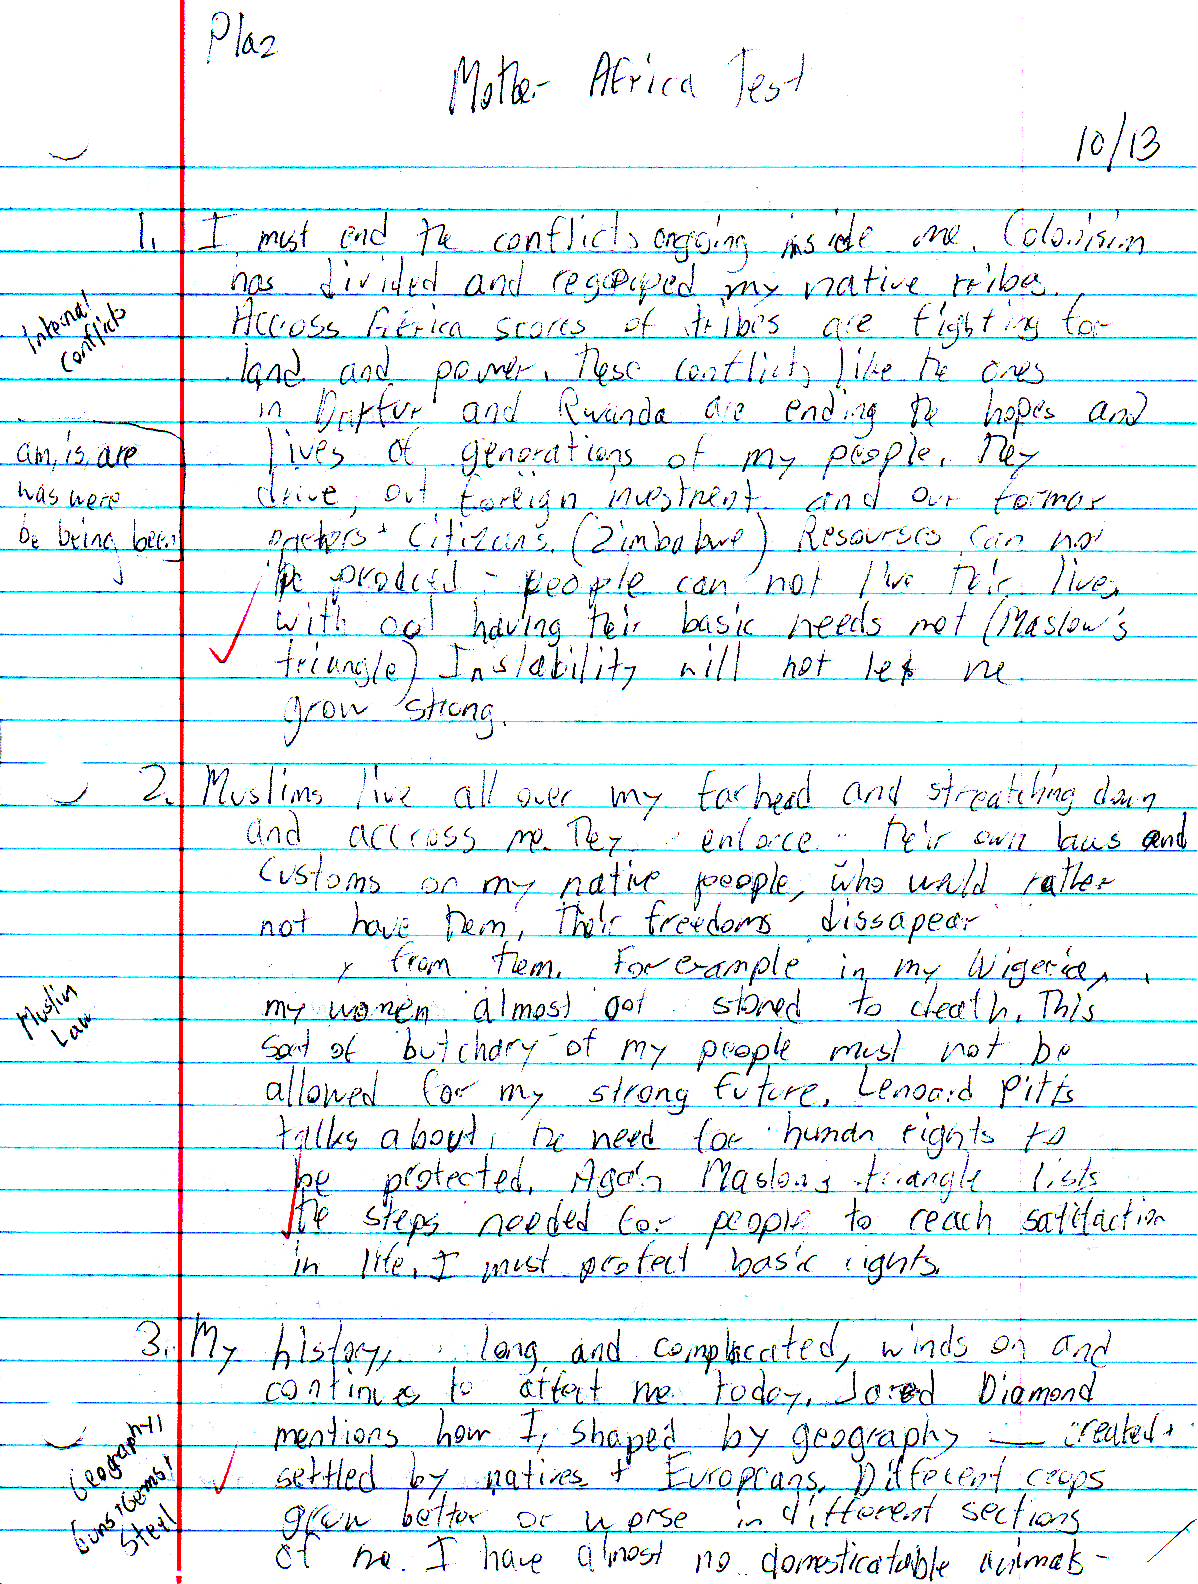 Plaz
Mother Africa Test
10/13
1. I must end the conflicts ongoing inside me. Colonisim
has divided and regrouped my native tribes.
Internal
conflicts
Accross Africa scores of tribes are fighting for
land and power. These conflicts like the ones
in Darfur and Rwanda are ending the hopes and
am, is, are
was were
be being been
lives of generations of my people. They
drive out foreign investment and our former
citizens. (Zimbabwe) Resourses can not
be produced - people can not live their lives
with out having their basic needs met (Maslow's
triangle) Instability will not let me
grow strong.
2. Muslims live all over my forhead and streatching down
and accross me. They enforce their own laws and
customs on my native people, who would rather
not have them, their freedoms dissapear
from them. For example in my Nigeria,
Muslim
Law
my women almost got stoned to death. This
sort of butchory of my people must not be
allowed for my strong future. Lenoard Pitts
talks about the need for human rights to
be protected. Again Maslow's triangle lists
the steps needed for people to reach satifaction
in life. I must protect basic rights.
3. My history, long and complicated, winds on and
continues to affect me today. Jared Diamond
mentions how I, shaped by geography — created +
Geography,
Guns + Germs +
Steel
settled by natives + Europeans. Different crops
grow better or worse in different sections
of me. I have almost no domesticatable animals -